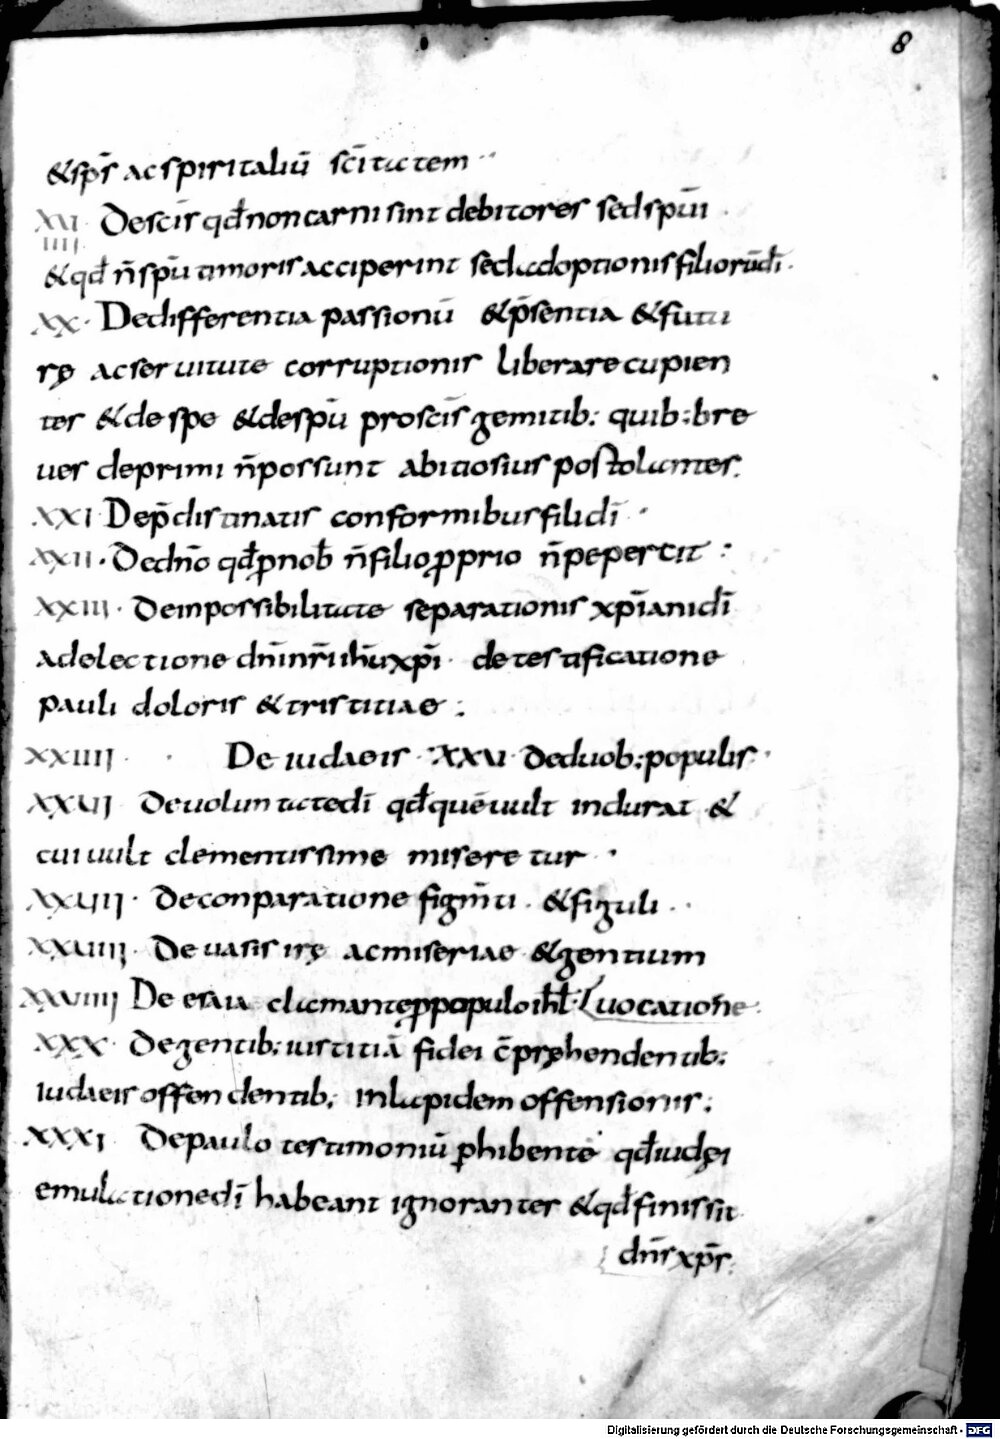 8
&sp̄s ac spiritaliū scītatem
XVI Descīs qđ non carni sint debitores sed spūi
IIII
&qđ n̄ spū timoris acciperint sed adoptionis filiorū dī.
XX· De differentia passionū &p̄sentia &futu
rę ac seruitute corruptionis liberare cupien
tes &de spe &de spū pro scīs gemitib: quib: bre
ues deprimi n̄ possunt a bitiosius postolantes:
XXI Dep̄distinatis conformibus filii dī ·
XXII· De dn̄o qđ ꝓ nob̄ n̄ filio ꝓprio n̄ pepercit :
XXIII· De inpossibilitate separationis xp̄iani dī
a delectione dn̄i nr̄i ihū xp̄i· de testificatione
pauli doloris &tristitiae :
XXIIII · De iudaeis · XXV· De duob: populis·
XXVI De uoluntate dī qđ quē uult indurat &
cui uult clementissime miseretur ·
XXVII· De conparatione figm̄ti · &figuli ·
XXVIII· De uasis irę ac miseriae &gentium
XXVIIII De esaia clamante ꝓ populo ihl̄ uocatione
XXX· De gentib: iustitiā fidei c̄pręhendentib:
iudaeis offendentib: in lapidem offensionis:
XXXI De paulo testimoniū ꝑhibente qđ iudęi
emulationē dī habeant ignoranter &qđ finis sit
dn̄s xp̄s:
Digitalisierung gefördert durch die Deutsche Forschungsgemeinschaft - DFG